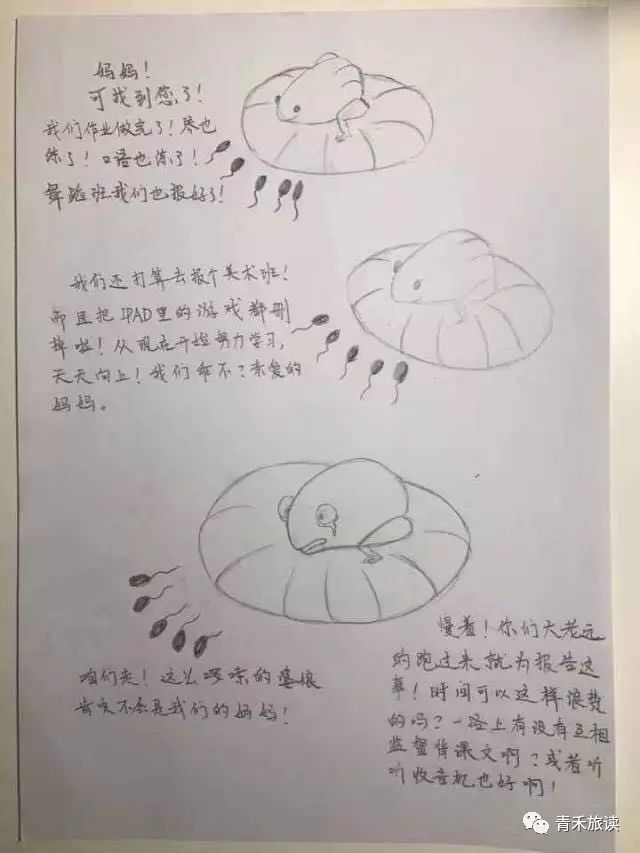 妈妈！
可找到您了！
我们作业做完了！琴也
练了！口语也练了！
舞蹈班我们也报好了！
我们还打算去报个美术班！
而且把IPAD里的游戏都删
掉啦！从现在开始努力学习，
天天向上！我们乖不？亲爱的
妈妈。
慢着！你们大老远
的跑过来就为报告这
事！时间可以这样浪费
的吗？一路上有没有互相
监督背课文啊？或者听
听收音机也好啊！
咱们走！这么啰嗦的婆娘
肯定不会是我们的妈妈！
青禾旅读